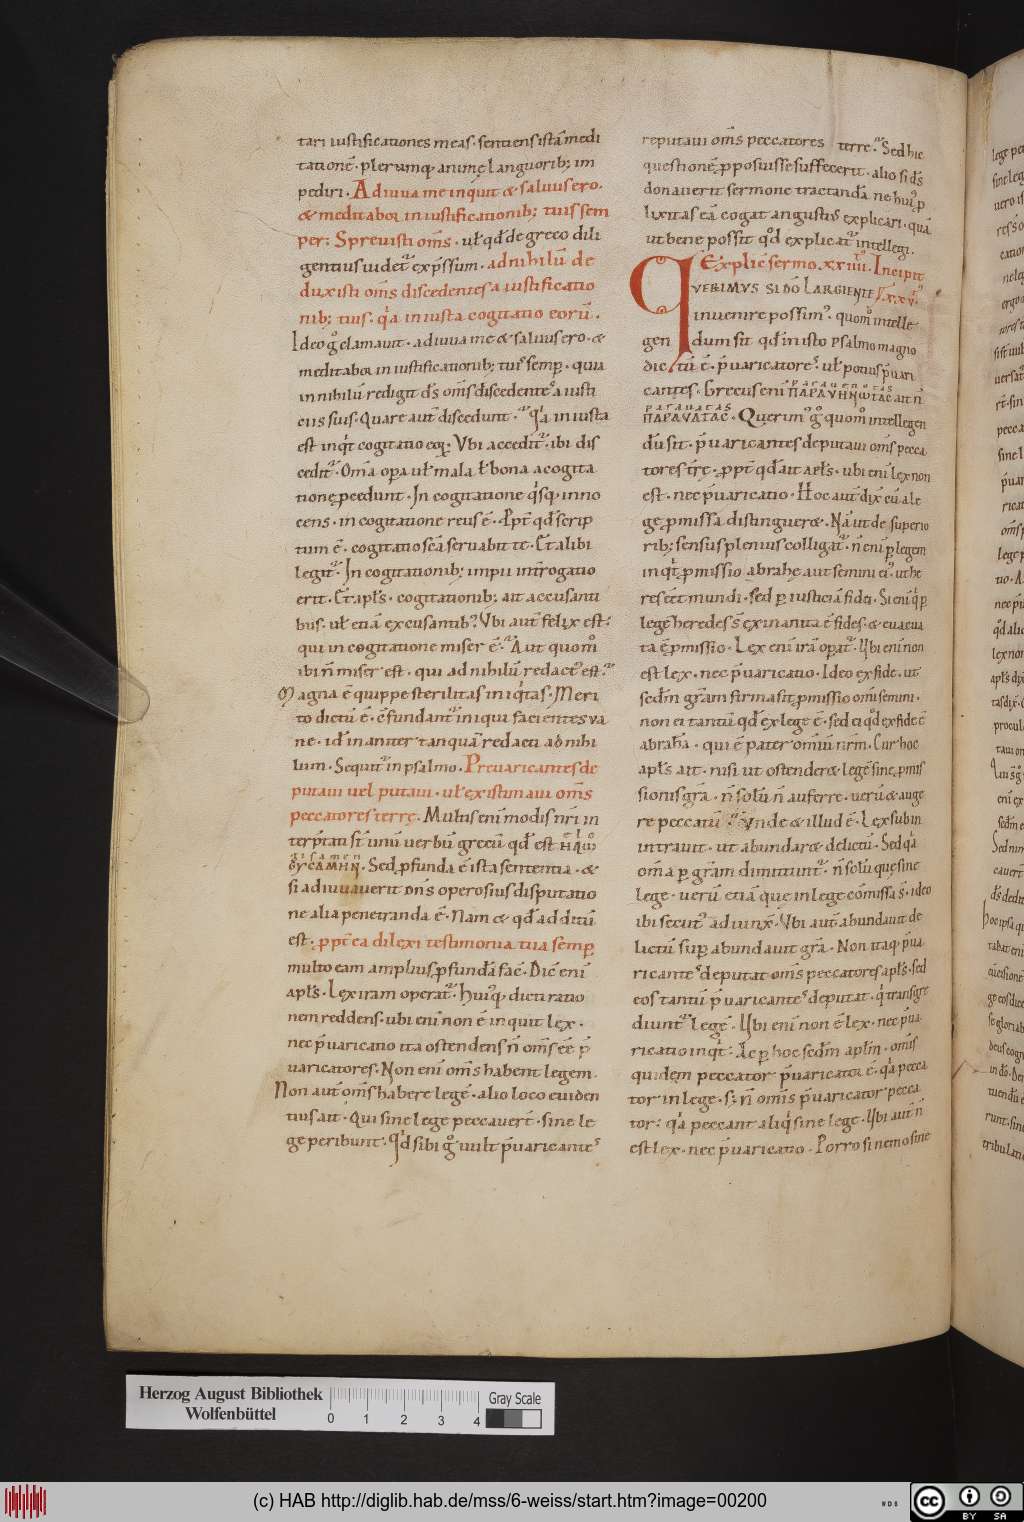 tari iustificationes meas. sentiens istā medi
tationē. plerumq; animę languorib; im
pediri. Adiuua me inquit & saluus ero.
& meditabor in iustificationib; tuis sem
per: Spreuisti om̄s. uł qd̄ de greco dili
gentius uidet exp̄ssum. ad nihilū de
duxisti om̄s discedentes a iustificatio
nib; tuis. q'a iniusta cogitatio eorū.
Ideo g° clamauit. adiuua me & saluus ero. &
meditabor in iustificationib; tuis semp. quia
in nihilū redigit d̄s om̄s discedentes a iusti
ciis suis. Quare aut̄ discedunt. q'a iniusta
est inq't cogitatio eoꝝ. Vbi accedit. ibi dis
cedit. Om̄a opa uł mala ł bona a cogita
tione p̲cedunt. In cogitatione q'sq; inno
cens. in cogitatione reus ē. Ppt̄ qd̄ scrip
tum ē. cogitatio sc̄a seruabit te. Et alibi
legit. In cogitationib; impii int̄rogatio
erit. Et apl's. cogitationib; ait accusanti
bus. uł etiā excusantib; Vbi aut̄ felix est.
qui in cogitatione miser ē. Aut quom°
ibi n̄ miser est. qui ad nihilū redactus est.
Magna ē quippe sterilitas iniq'tas. Meri
to dictū ē. cōfundant iniqui facientes ua
ne. id̄ inaniter tanquā redacti ad nihi
lum. Sequit in psalmo. Preuaricantes de
putaui uel putaui. uł existimaui om̄s
peccatores terrę. Multis enī modis nr̄i in
terp̄tati st̄ unū uerbū grecū qd̄ est ΗΛΩ
ΟΥCΑΜΗΝ. Sed p̲funda ē ista sententia. &
si adiuuauerit dn̄s operosius disputatio
ne alia penetranda ē. Nam & qd̄ additū
est. ppt̄ea dilexi testimonia tua semp
multo eam amplius p̲fundā facit. Dicit enī
apl's. Lex iram operat. Huiq; dicti ratio
nem reddens. ubi enī non ē inquit lex.
nec p̄uaricatio ita ostendens n̄ om̄s ēe p̄
uaricatores. Non enī om̄s habent legem.
Non aut̄ om̄s habere legē. alio loco euiden
tius ait. Qui sine lege peccauert̄. sine le
ge peribunt. Q'd sibi g° uult p̄uaricantes
reputaui om̄s peccatores terre. Sed hic
questionē p̲posuisse suffecerit. alio si d̄s
donauerit sermone tractandā. ne hui' p̲
lixitas eā cogat angustius explicari. quā
ut bene possit q°d explicat intellegi.
Explic̄ sermo xxiiii. Incipit
QVERIMVS SI DŌ LARGIENTE s. xxv.
inuenire possim'. quom° intelle
gendum sit qd̄ in isto psalmo magno
dictū ē. p̄uaricatores. uł potius p̄uari
cantes. Grecus enī ΠΑΡΑΥΗΝΩΤΑC ait n̄
ΠΑΡΑΥΑΤΑC. Querim' g° quom° intellegen
dū sit. p̄uaricantes deputaui om̄s pecca
tores tr̄ę. ppt̄ qd̄ ait apl's. ubi enī lex non
est. nec p̄uaricatio. Hoc aut̄ dix̄ cū a le
ge p̲missa distinguere. Nā ut de superio
rib; sensus plenius colligat. n̄ enī p legem
inq't p̲missio abrahę aut semini ei'. ut he
res eēt mundi. sed p iusticiā fidei. Si enī q' p
legē heredes s̄. exinanita ē fides. & euacua
ta ē p̲missio. Lex enī irā opat. Vbi enī non
est lex. nec p̄uaricatio. Ideo ex fide. ut
secdm̄ grām firma sit p̲missio omī semini.
non ei tantū qd̄ ex lege ē. sed ei q°d ex fide ē
abrahā. qui ē pater omiū nr̄m. Cur hoc
apl's ait. nisi ut ostendere. legē sine p̲mis
sionis gr̄a. n̄ solū n̄ auferre. uerū & auge
re peccatū. Vnde & illud ē. Lex subin
trauit. ut abundare delictū. Sed q'a
om̄a p grām dimittunt. n̄ solū quę sine
lege. uerū etiā que in lege cōmissa s̄. ideo
ibi secut' adiunx̄. Vbi aut̄ abundauit de
lictū supabundauit gr̄a. Non itaq; p̄ua
ricantes deputat om̄s peccatores apl's. sed
eos tantū p̄uaricantes deputat. q' transgre
diunt legē. Vbi enī non ē lex. nec p̄ua
ricatio inq't. Ac p hoc secdm̄ apl'm. om̄is
quidem peccator p̄uaricator ē. q'a pecca
tor in lege. s; n̄ om̄is p̄uaricator pecca
tor: q'a peccant aliq' sine lege. Vbi aut̄ n̄
est lex. nec p̄uaricatio. Porro si nemo sine
Herzog August Bibliothek
Wolfenbüttel
0 1 2 3 4
Gray Scale
(c) HAB http://diglib.hab.de/mss/6-weiss/start.htm?image=00200
WDB
cc BY SA